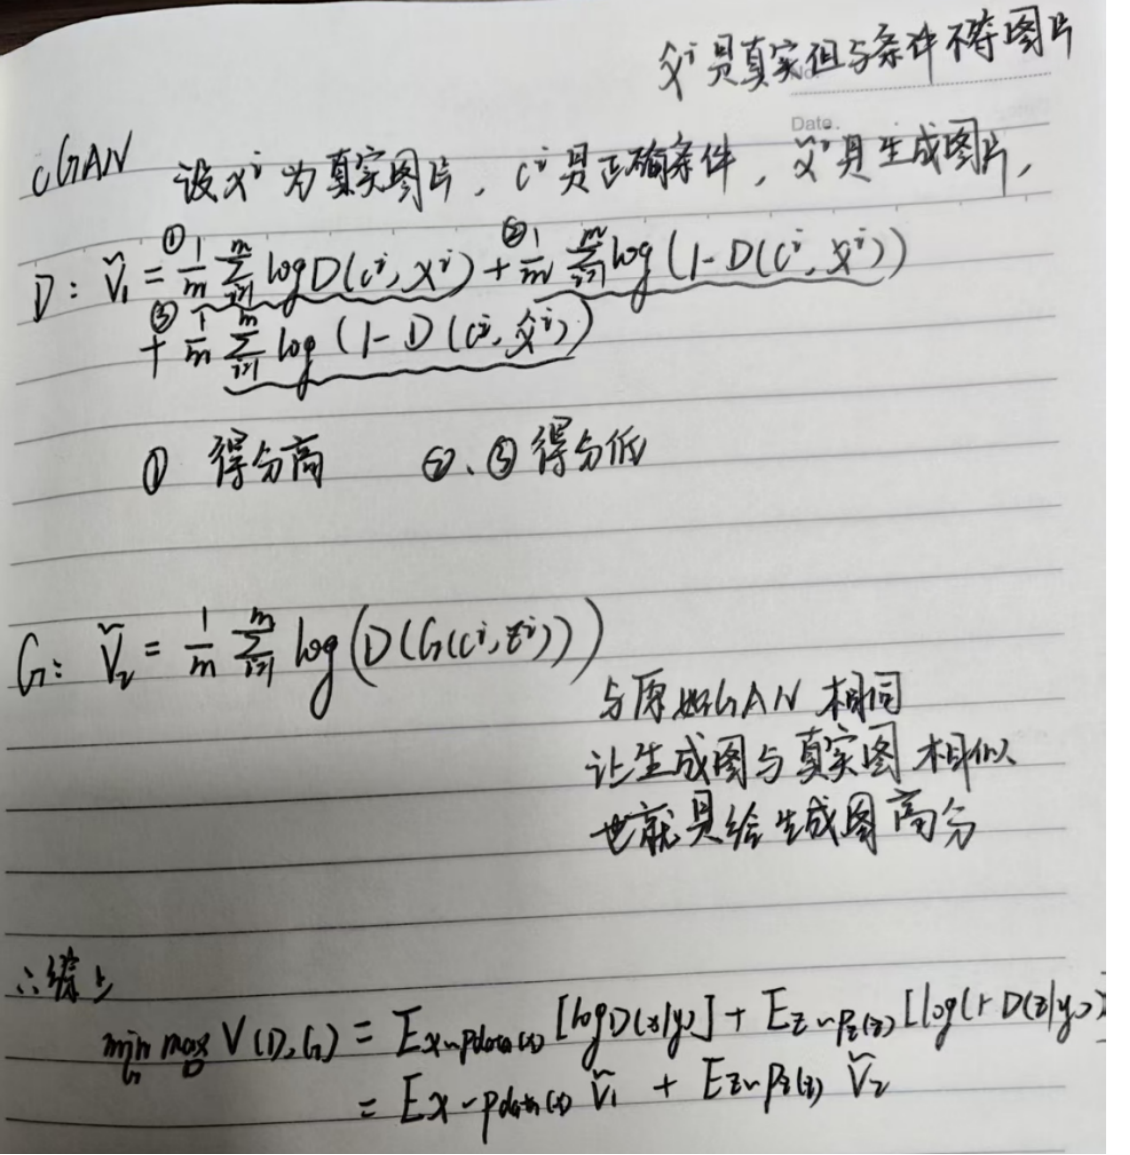 x̂ⁱ是真实但与条件不符图片
No.
Date.
cGAN 设xⁱ为真实图片，cⁱ是正确条件，x̃ⁱ是生成图片，
D: Ṽ₁ = ① 1/m Σᵢ₌₁ᵐ logD(cⁱ, xⁱ) + ② 1/m Σᵢ₌₁ᵐ log(1-D(cⁱ, x̃ⁱ))
+ ③ 1/m Σᵢ₌₁ᵐ log(1-D(cⁱ, x̂ⁱ))
① 得分高 ②、③得分低
G: Ṽ₂ = 1/m Σᵢ₌₁ᵐ log(D(G(cⁱ, zⁱ)))
与原始GAN相同
让生成图与真实图相似
也就是给生成图高分
∴综上
min_G max_D V(D,G) = E_x~pdata(x) [logD(x|y)] + E_z~p_z(z) [log(1-D(z|y)
= E_x~pdata(x) Ṽ₁ + E_z~p_z(z) Ṽ₂